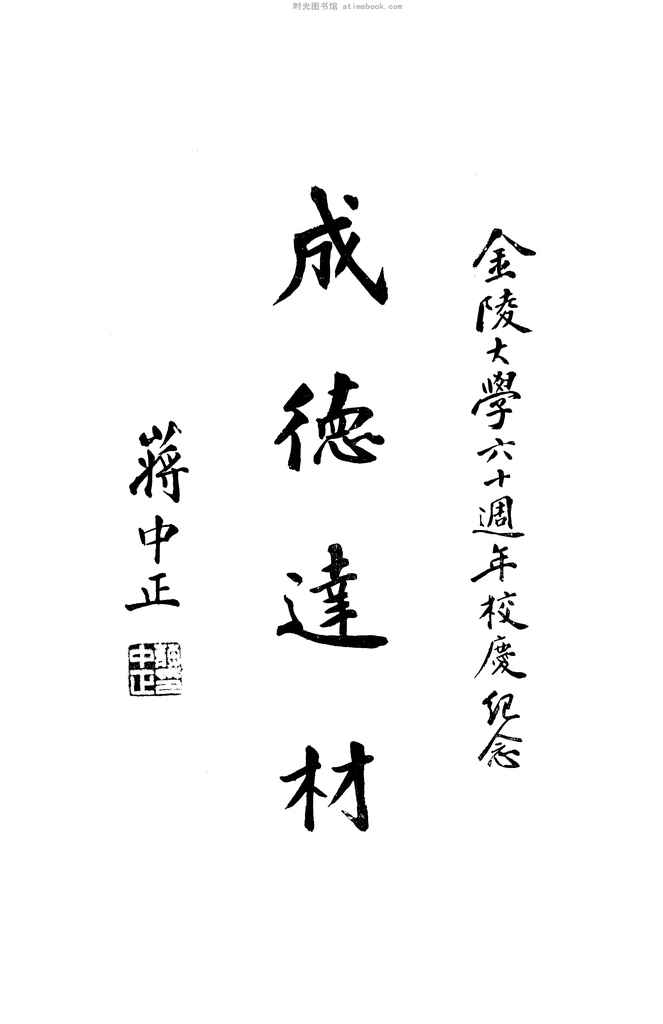 时光图书馆 atimebook.com
金陵大學六十週年校慶紀念
成德達材
蔣中正